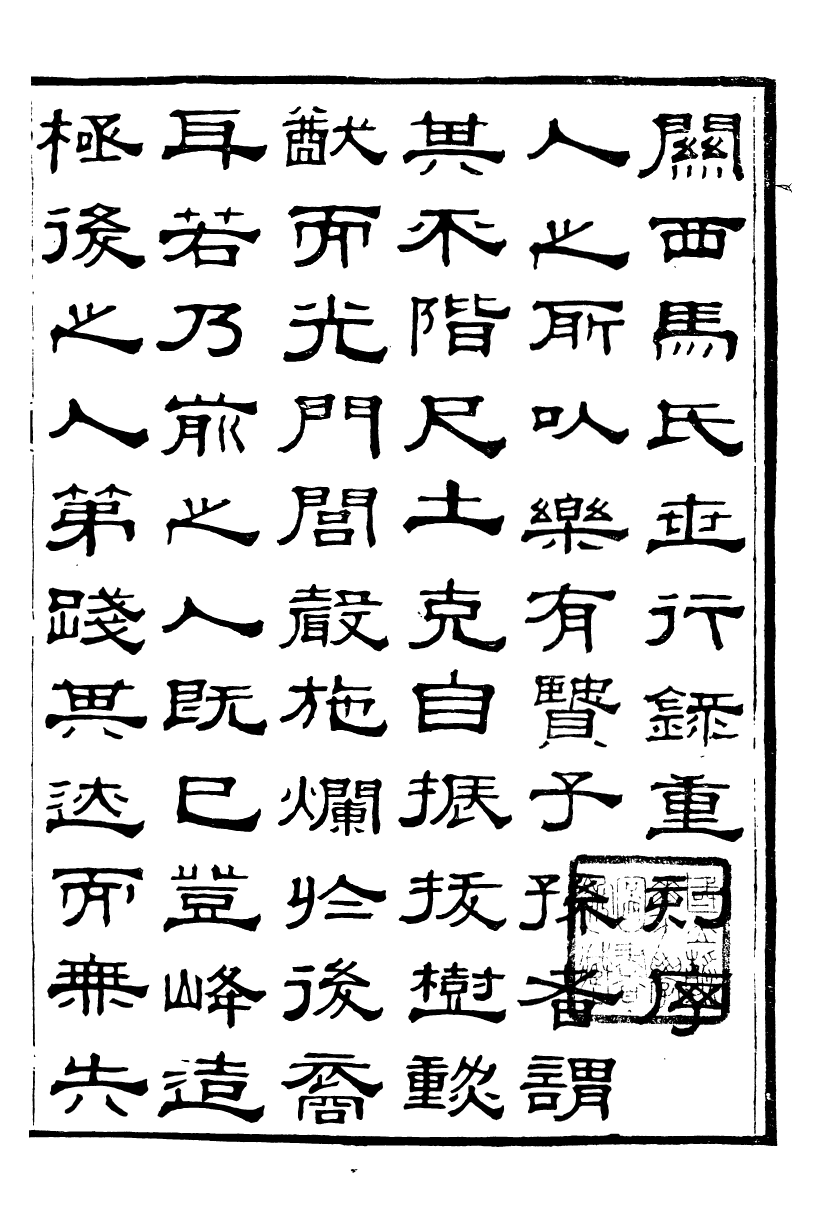 關西馬氏世行錄重刻序
人之所以樂有賢子孫者謂
其不階尺土克自振拔樹勳
猷而光門閭聲施爛於後裔
耳若乃前之人既已豈峰造
極後之人第踐其迹而無失